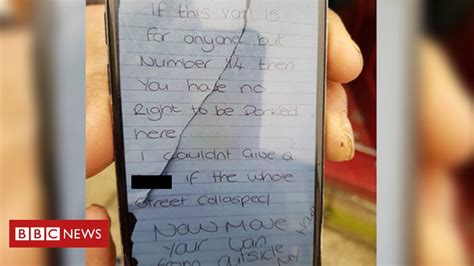 If this Van is
for anyone but
Number 14 then
You have no
Right to be Parked
here
I couldnt Give a
if the whole
Street Collasped
Now Move
Your Van
from outside
My
BBC NEWS